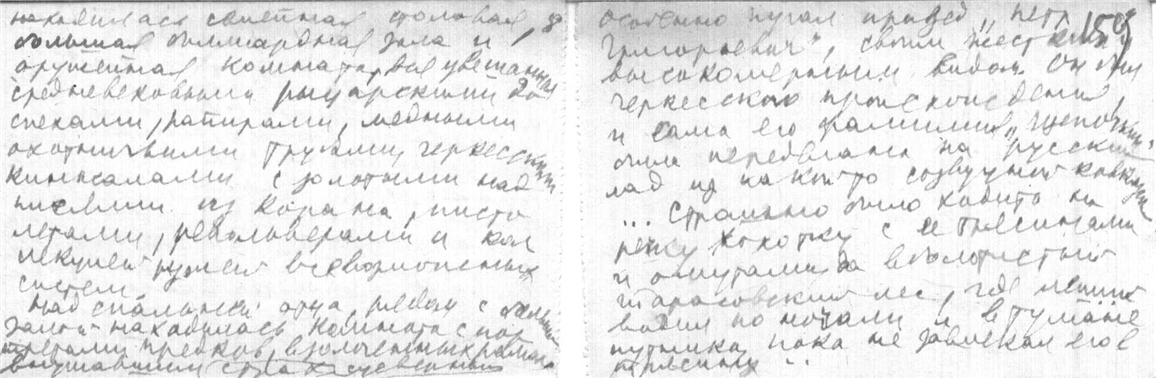 находилась семейная столовая,
большая биллиардная зала и
оружейная комната, вся увешанная
средневековыми рыцарскими до
спехами, рапирами, медными
охотничьими трубами, черкесскими
кинжалами с золотыми над
писями из Корана, писто
летами, револьверами и кол
лекцией ружей всевозможных
систем.
Над спальней отца, рядом с
залой находилась комната с пор
третами предков, в золоченых рамах,
внушавшим страх суеверный
особенно пугал прадед „Петр 150
Григорьевич", своим жестким,
высокомерным видом. Он был
черкесского происхождения,
и сама его фамилия
была переделана на русский
лад из какой то созвучной кавказ
... Страшно было ходить на
реку Хохотку с
и омутами да в болотистый
Тарасовский лес, где леший
водил по ночам и в тумане
путника, пока не завлекал его в
трясину...